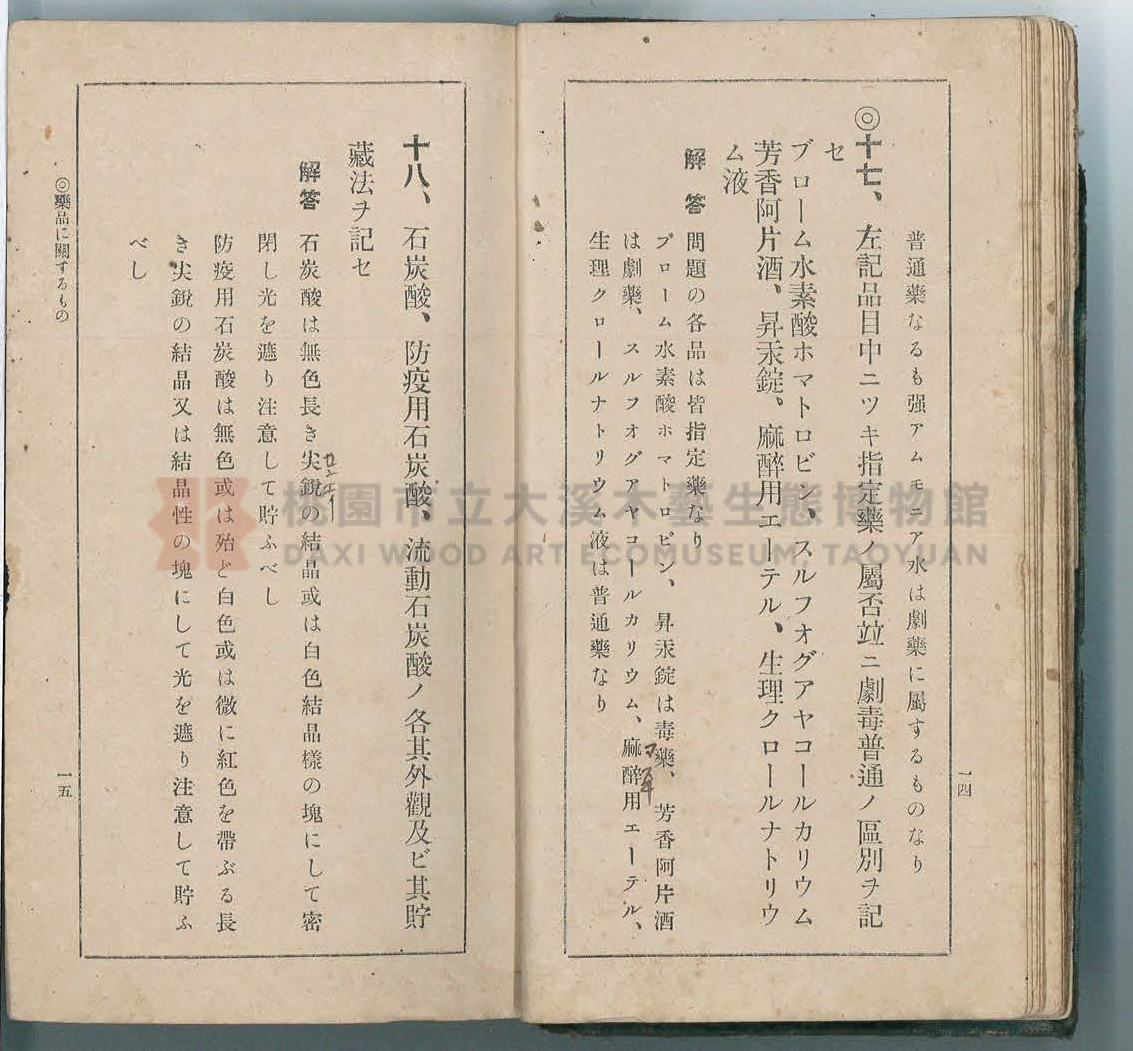 普通藥なるも强アムモニア水は劇藥に屬するものなり
◎十七、左記品目中ニツキ指定藥ノ屬否竝ニ劇毒普通ノ區別ヲ記
セ
ブローム水素酸ホマトロビン、スルフオグアヤコールカリウム
芳香阿片酒、昇汞錠、麻醉用エーテル、生理クロールナトリウ
ム液
解答 問題の各品は皆指定藥なり
ブローム水素酸ホマトロビン、昇汞錠は毒藥、芳香阿片酒
は劇藥、スルフオグアヤコールカリウム、麻醉用エーテル、
生理クロールナトリウム液は普通藥なり
一四
十八、石炭酸、防疫用石炭酸、流動石炭酸ノ各其外觀及ビ其貯
藏法ヲ記セ
解答 石炭酸は無色長き尖銳の結晶或は白色結晶樣の塊にして密
閉し光を遮り注意して貯ふべし
防疫用石炭酸は無色或は殆ど白色或は微に紅色を帶ぶる長
き尖銳の結晶又は結晶性の塊にして光を遮り注意して貯ふ
べし
◎藥品に關するもの
一五
桃園市立大溪木藝生態博物館
DAXI WOOD ART ECOMUSEUM, TAOYUAN